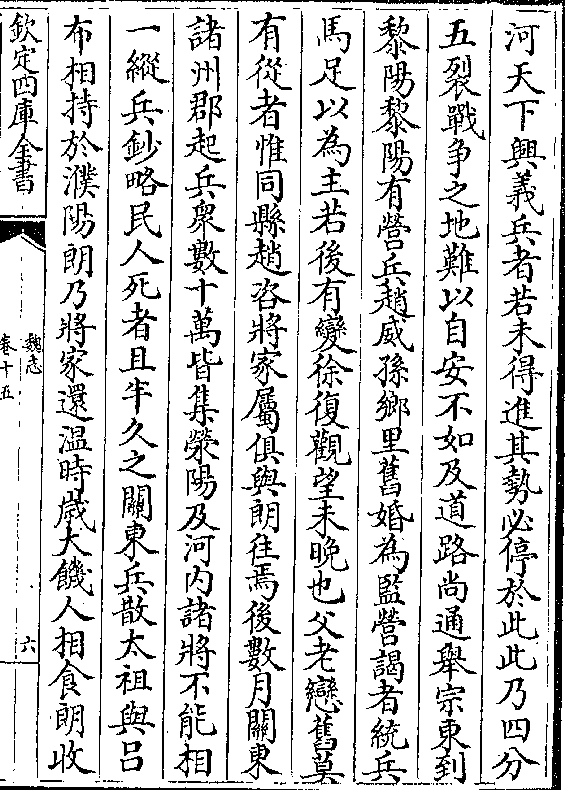 河天下興義兵者若未得進其勢必停於此此乃四分
五裂戰爭之地難以自安不如及道路尚通舉宗東到
黎陽黎陽有營兵趙威孫鄉里舊婚為監營謁者統兵
馬足以為主若後有變徐復觀望未晚也父老戀舊莫
有從者惟同縣趙咨將家屬俱與朗往焉後數月關東
諸州郡起兵衆數十萬皆集滎陽及河内諸將不能相
一縱兵鈔略民人死者且半久之關東兵散太祖與吕
布相持於濮陽朗乃將家還溫時嵗大饑人相食朗收
欽定四庫全書
魏志
卷十五
六